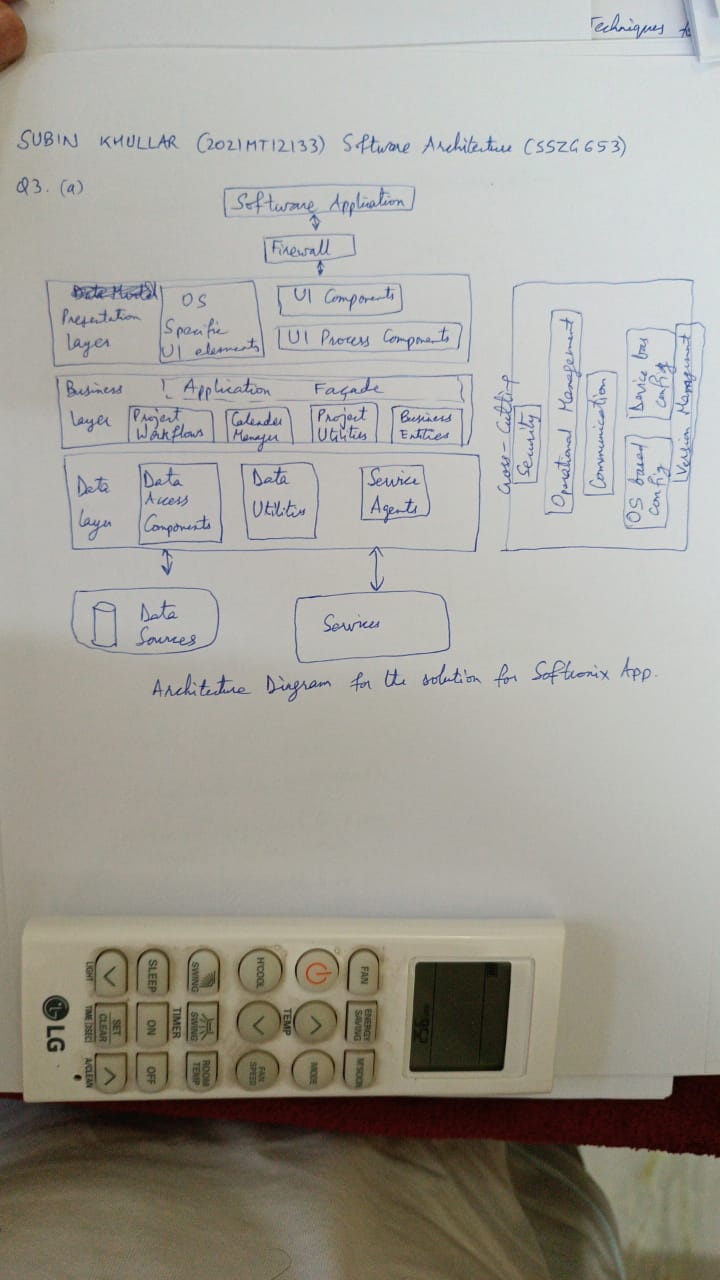 Techniques
SUBIN KHULLAR (2021MT12133) Software Architecture (SSZG653)
Q3. (a)
Software Application
Firewall
Presentation
Layer
OS
Specific
UI elements
UI Components
UI Process Components
Business
Layer
Application Façade
Project
Workflows
Calender
Manager
Project
Utilities
Business
Entities
Data
Layer
Data
Access
Components
Data
Utilities
Service
Agents
Data
Sources
Services
Cross-Cutting
Security
Operational Management
Communication
OS based
config
Device bas
config
Version Management
Architecture Diagram for the solution for Softronix App.
FAN
ENERGY
SAVING
H'COOL
TEMP
MODE
FAN
SPEED
SWING
SWING
ROOM
TEMP
TIMER
SLEEP
ON
OFF
LIGHT
SET
CLEAR
TIME(3SEC)
A/CLEAN
LG